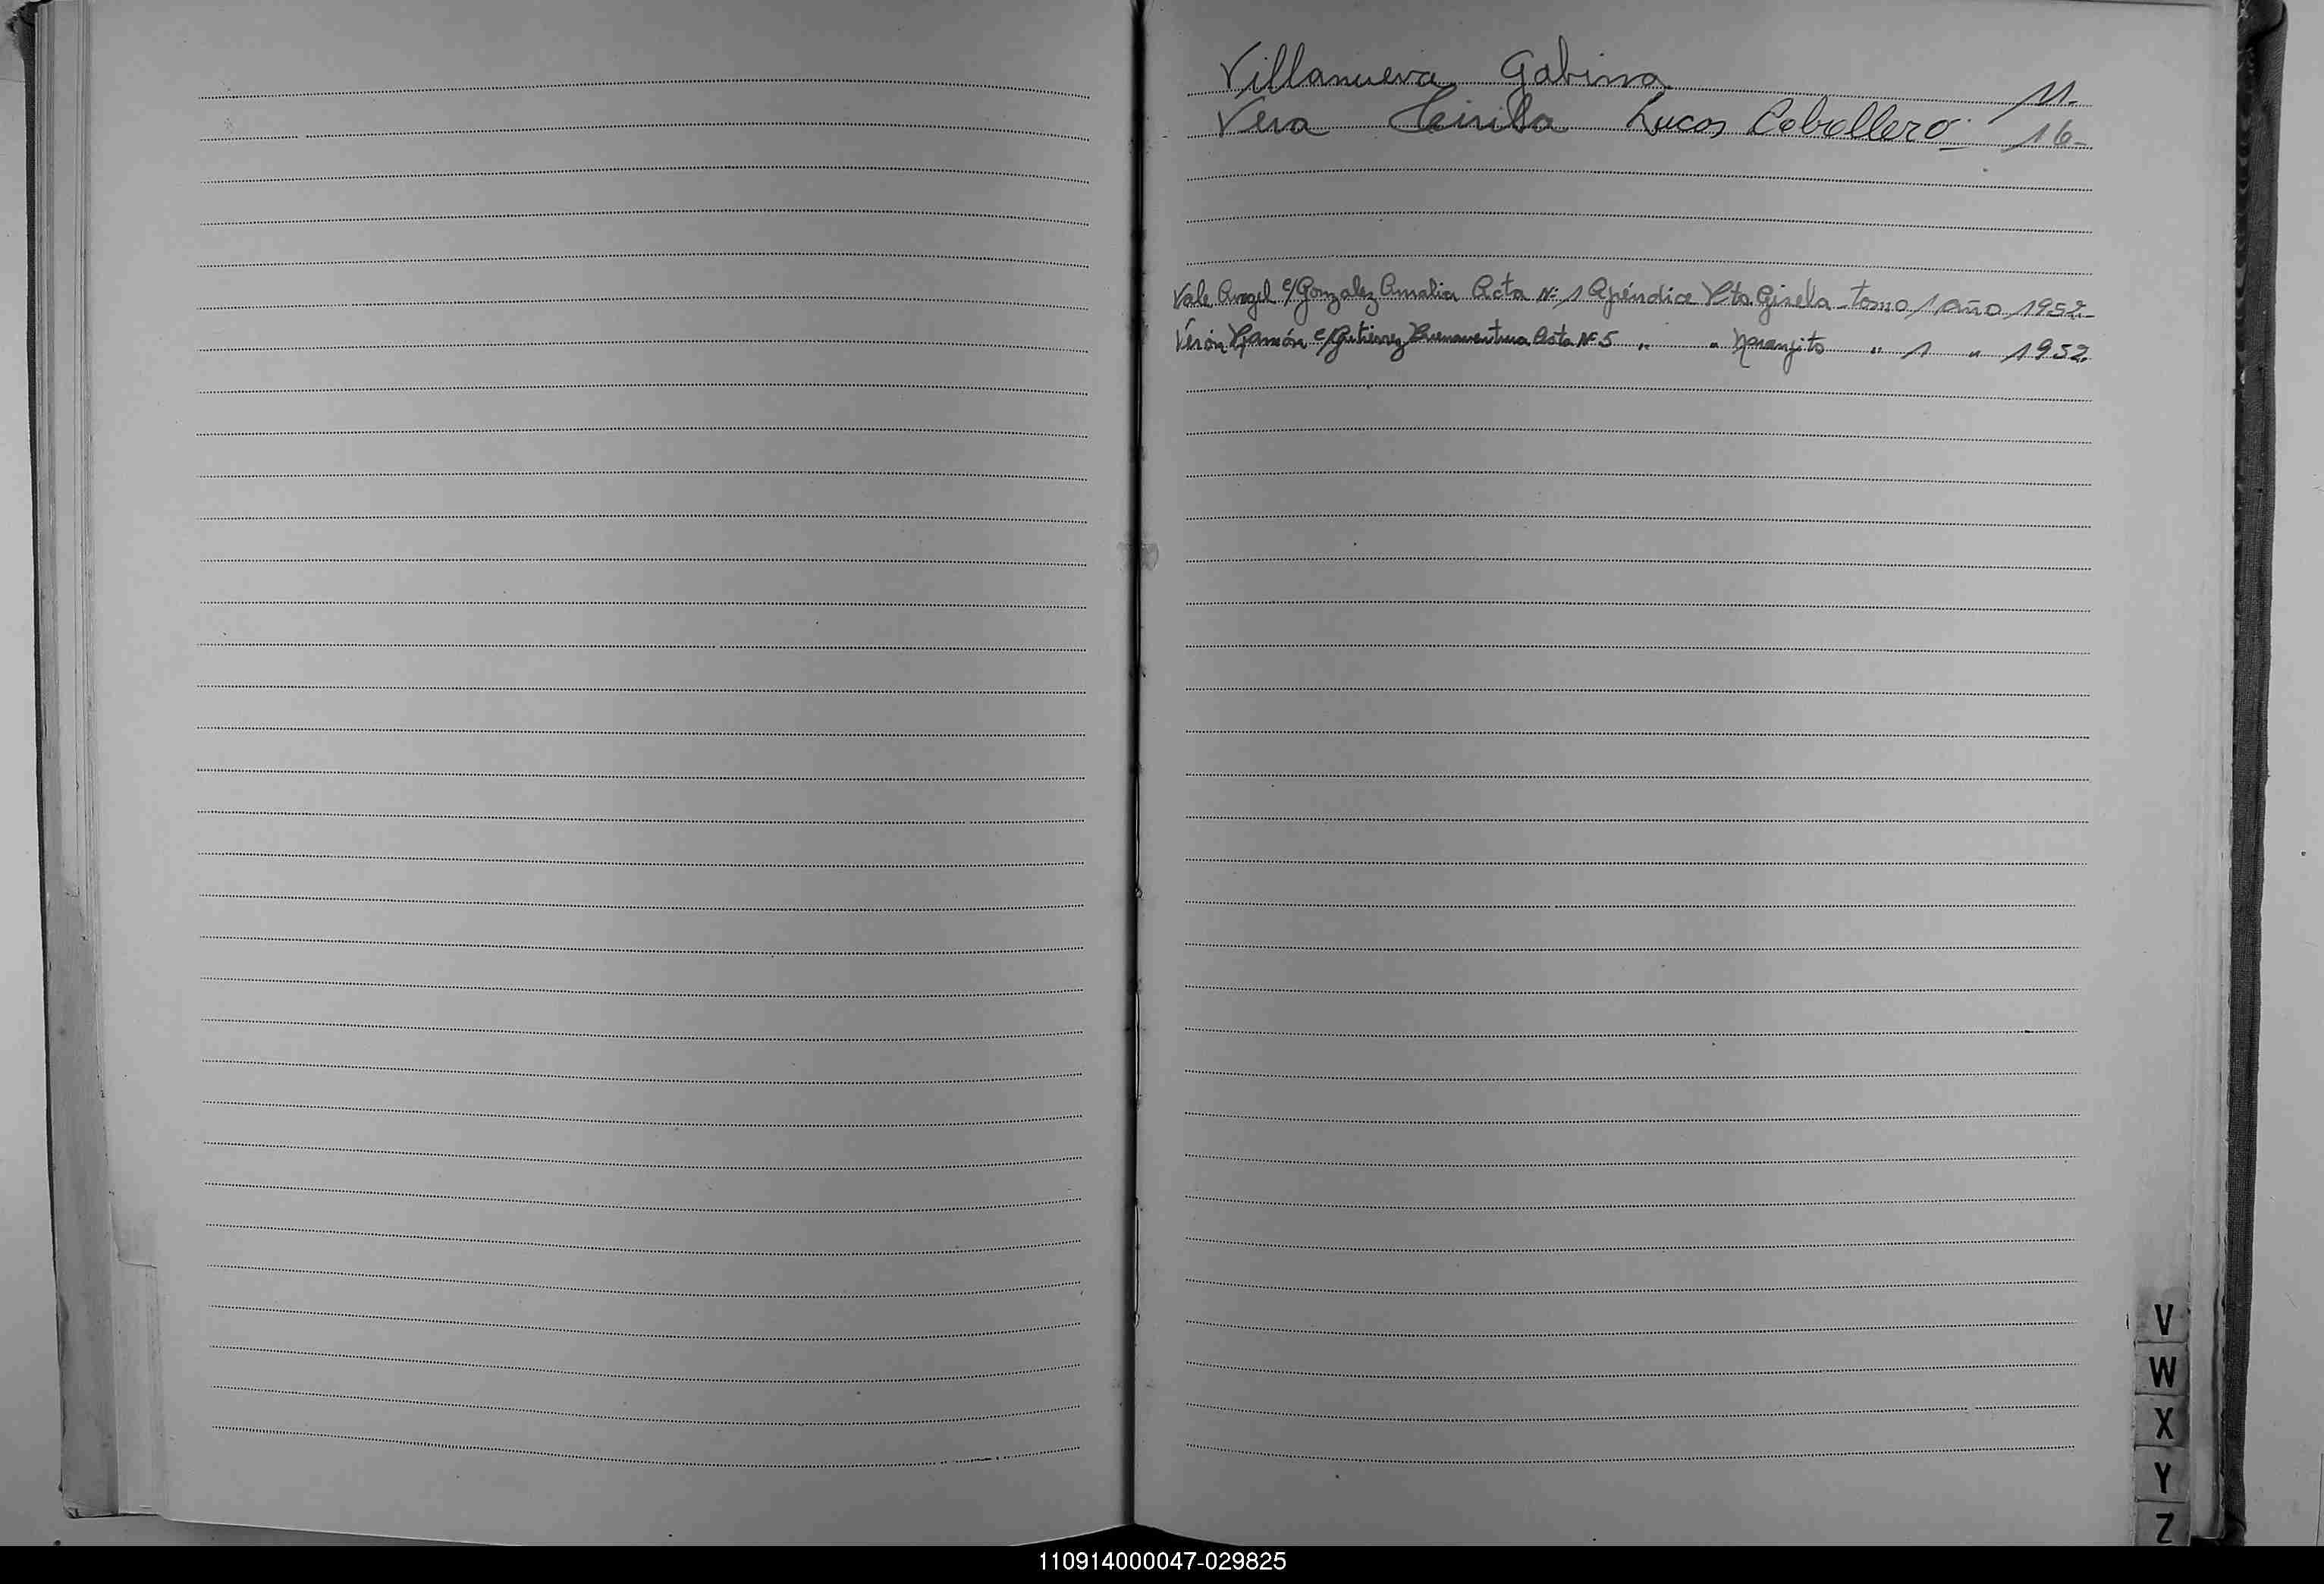 Villanueva Gabina 11.-
Vera Lucas Caballero.- 16-
Vale Angel c/ Gonzalez Amalia Acta Nº 1 Apéndice Pto Gisela - tomo 1 año 1952.-
Verón Ramón c/ Gutiérrez Buenaventura Acta Nº 5 " " Naranjito " 1 " 1952.
V
W
X
Y
Z
110914000047-029825